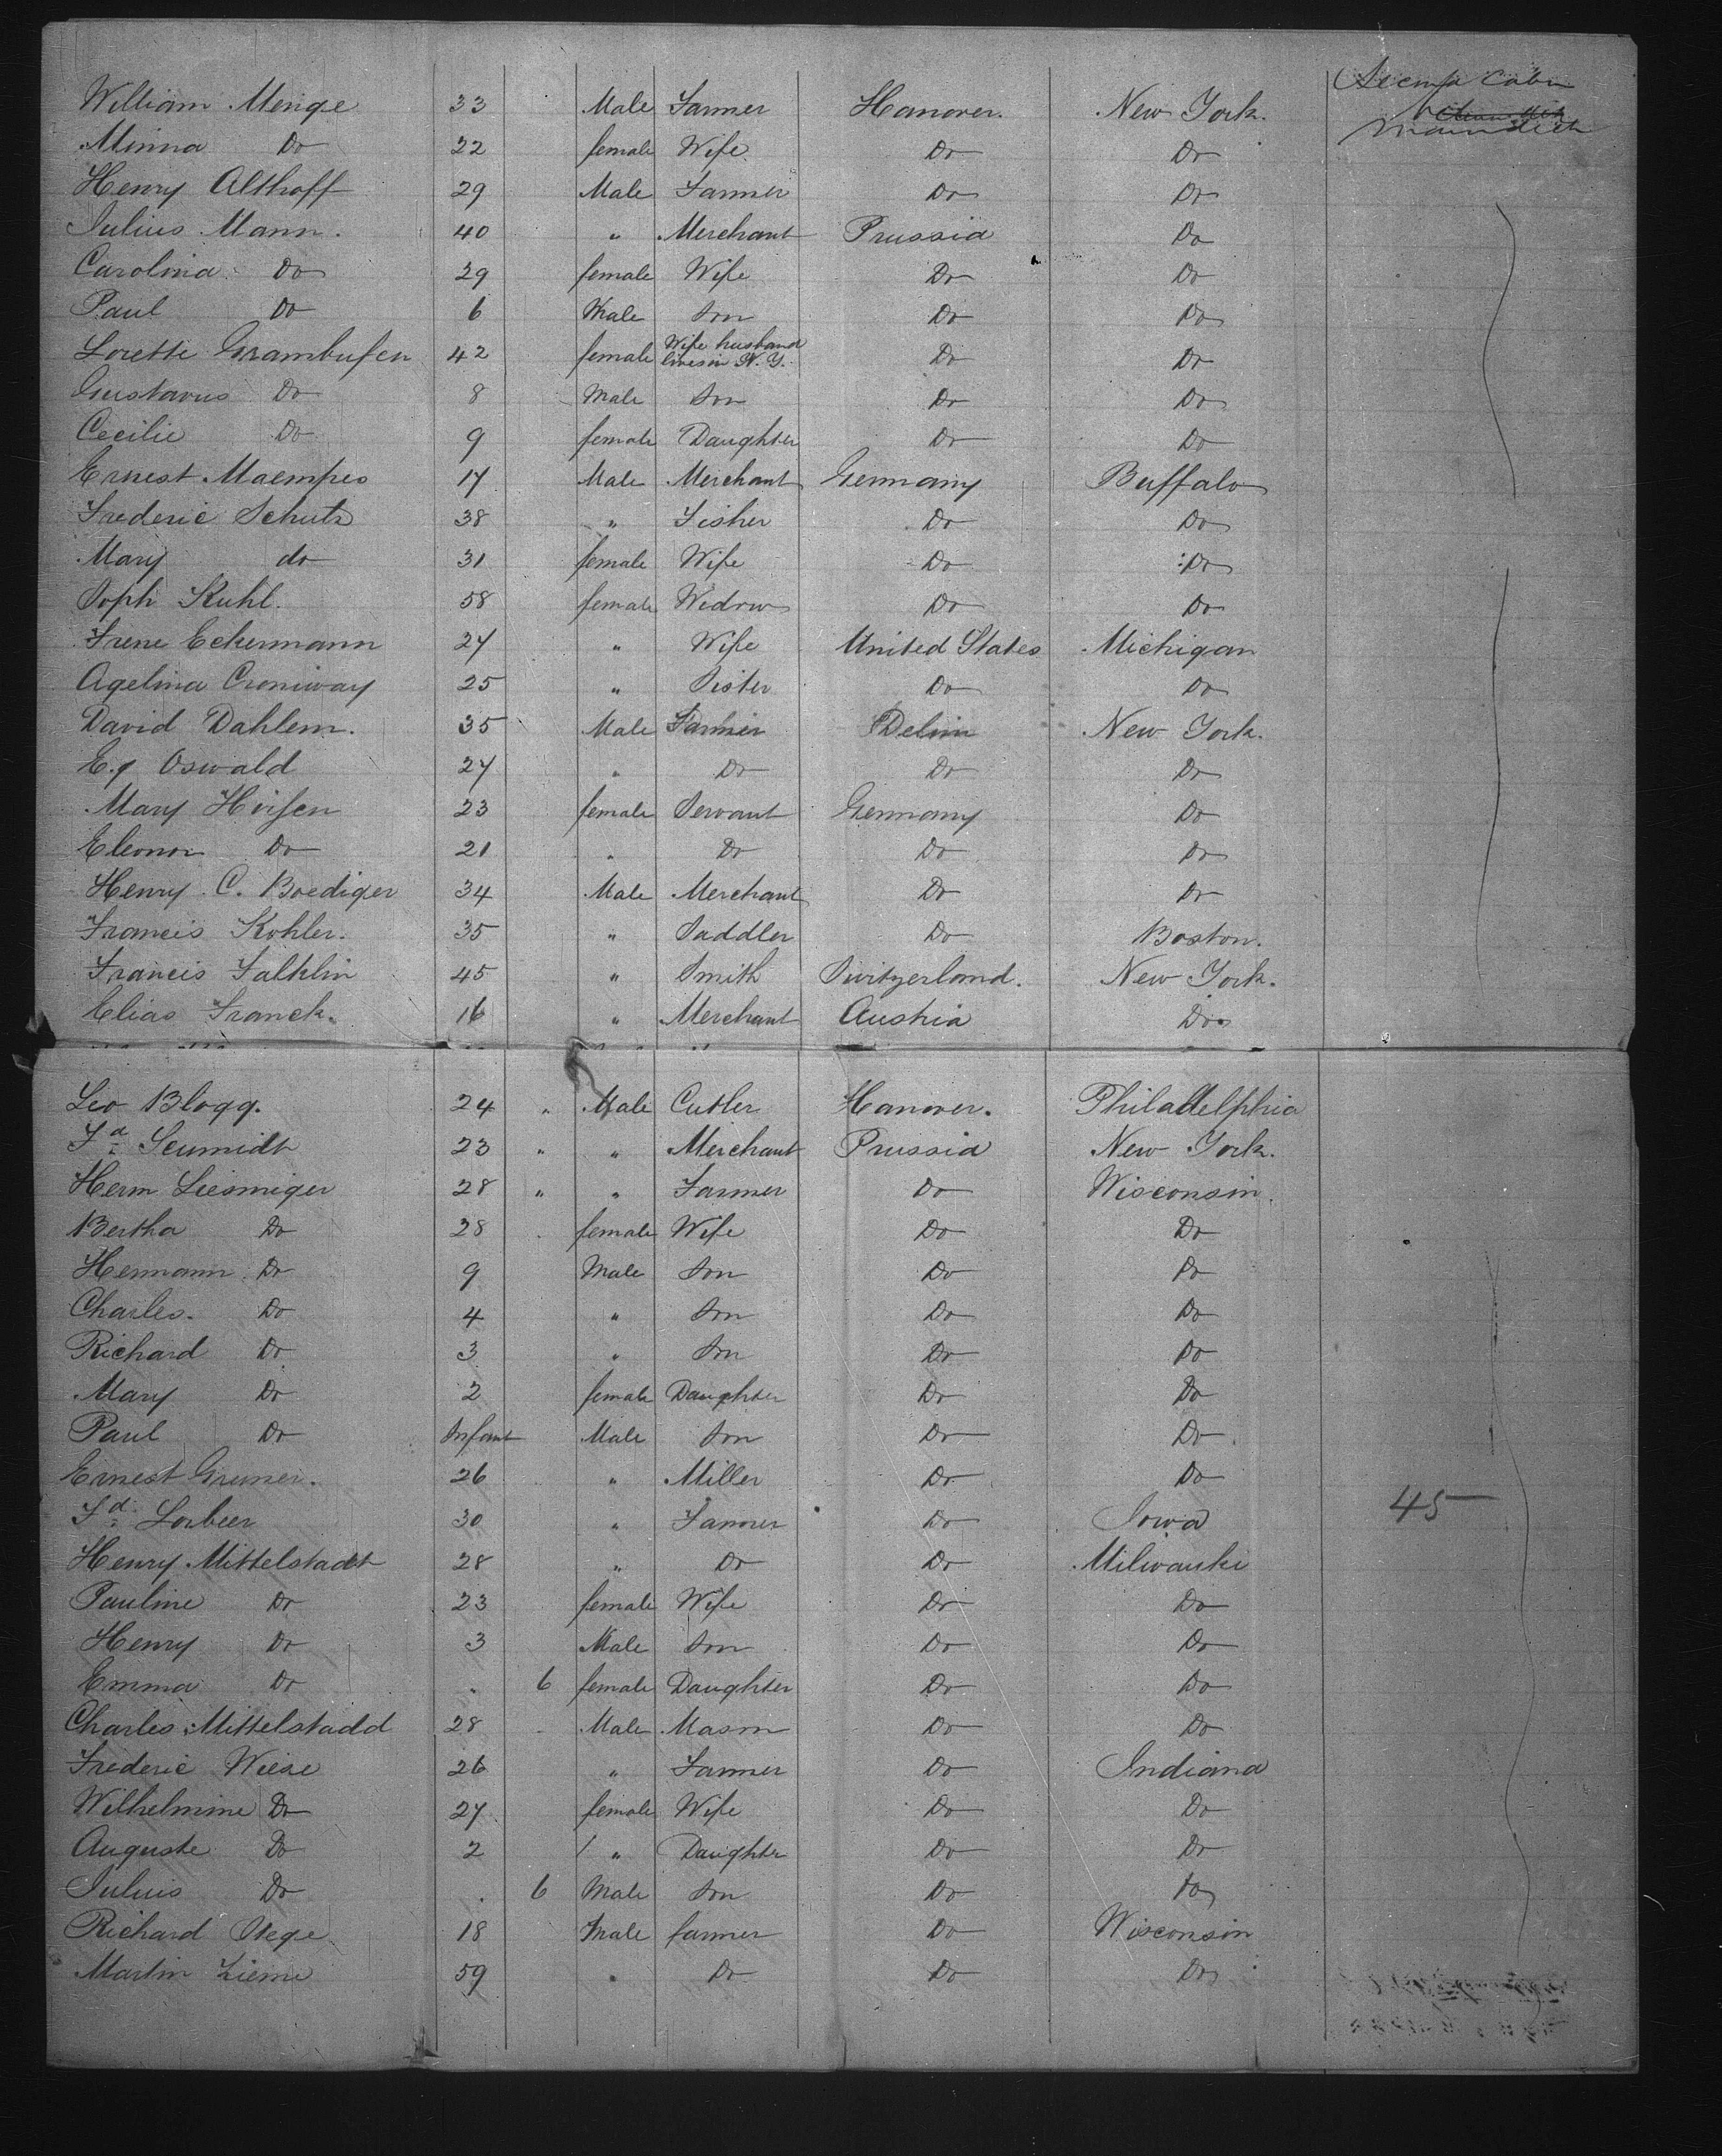 Second Cabin
William Menge 33 Male Farmer Hanover. New York.
Main deck
Minna Do 22 female Wife Do Do
Henry Althoff 29 Male Farmer Do Do
Julius Mann. 40 " Merchant Prussia Do
Carolina Do 29 female Wife Do Do
Paul Do 6 Male Son Do Do
Lorette Grambufen 42 female Wife husband lives in N.Y. Do Do
Gustavus Do 8 Male Son Do Do
Cecilie Do 9 female Daughter Do Do
Ernest Maempes 17 Male Merchant Germany Buffalo
Frederic Schutz 38 " Fisher Do Do
Mary do 31 female Wife Do Do
Soph Kuhl. 58 female Widow Do Do
Irene Eckermann 27 " Wife United States Michigan
Agelina Croniway 25 " Sister Do Do
David Dahlem. 35 Male Farmer New York.
E.g Oswald 27 " Do Do Do
Mary Hoifen 23 female Servant Germany Do
Eleonor Do 21 " Do Do Do
Henry C. Boediger 34 Male Merchant Do Do
Francis Kohler. 35 " Saddler Do Boston.
Francis Falklin 45 " Smith Switzerland. New York.
Elias Franck. 16 " Merchant Austria Do
Leo Blogg. 24 " Male Cutler Hanover. Philadelphia
Fd Scumidt 23 " " Merchant Prussia New York.
Herm Liesmiger 28 " " Farmer Do Wisconsin.
Bertha Do 28 female Wife Do Do
Hermann Do 9 Male Son Do Do
Charles. Do 4 " Son Do Do
Richard Do 3 " Son Do Do
Mary Do 2 female Daughter Do Do
Paul Do Infant Male Son Do Do
Ernest Gruner. 26 " Miller Do Do
Fd Lorbeer 30 " Farmer Do Iowa 45
Henry Mittelstadt 28 " Do Do Milwauki
Pauline Do 23 female Wife Do Do
Henry Do 3 Male Son Do Do
Emma Do . 6 female Daughter Do Do
Charles Mittelstadd 28 Male Mason Do Do
Frederic Wiese 26 " Farmer Do Indiana
Wilhelmine Do 27 female Wife Do Do
Auguste Do 2 " Daughter Do Do
Julius Do . 6 Male Son Do Do
Richard Stege 18 Male farmer Do Wisconsin
Martin Lieme 59 " Do Do Do